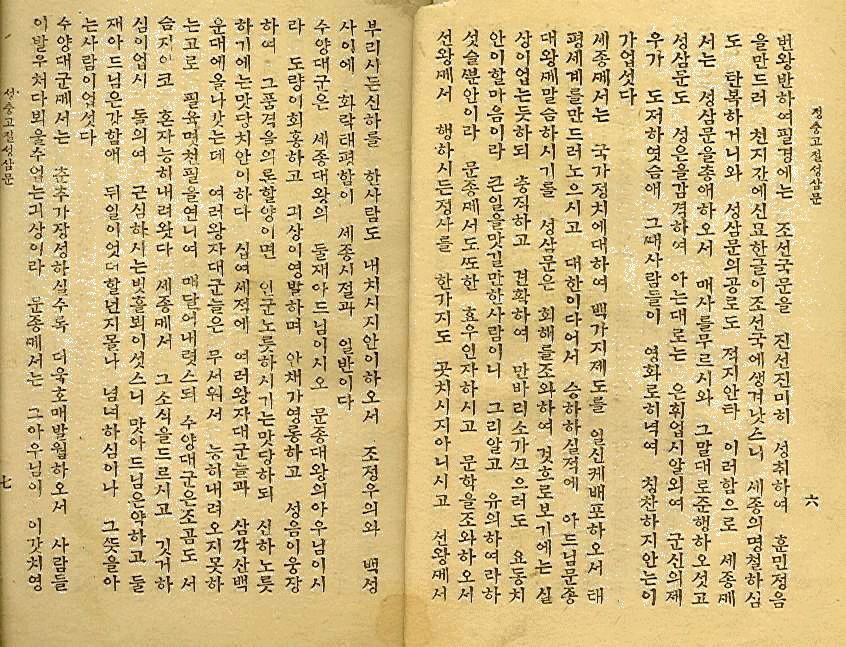 정충고절성삼문
六
번왕반하여필경에는 조선국문을 진선진미히 성취하여 훈민정음
을만드러 천지간에신묘한글이조선국에생겨낫스니 세종의명철하심
도 탄복하거니와 성삼문의공로도 적지안타 이러함으로 세종께
서는 성삼문을총애하오서 매사를무르시와 그말대로준행하오섯고
성삼문도 성은을감격하여 아는대로는 은휘업시알외여 군신의제
우가 도저하엿슴애 그때사람들이 영화로히녁여 칭찬하지안는이
가업섯다
세종께서는 국가정치에대하여 백가지제도를 일신케배포하오서 태
평세계를만드러노으시고 대한이다어서 승하하실적에 아드님문종
대왕께말슴하시기를 성삼문은 회해를조와하여 것흐로보기에는 실
상이업는듯하되 충직하고 견확하여 만바리소가끄으러도 요동치
안이할마음이라 큰일을맛길만한사람이니 그리알고 유의하여라하
섯슬뿐안이라 문종께서도또한 효우인자하시고 문학을조와하오서
선왕께서 행하시든정사를 한가지도 곳치시지아니시고 선왕께서
부리시든신하를 한사람도 내치시지안이하오서 조정우의와 백성
사이에 화락태평함이 세종시절과 일반이다
수양대군은 세종대왕의 둘재아드님이시오 문종대왕의아우님이시
라 도량이회홍하고 긔상이영발하며 안채가영롱하고 성음이웅장
하여 그품격을의론할양이면 인군노릇하시기는맛당하되 신하노릇
하기에는맛당치안이하다 십여세적에 여러왕자대군들과 삼각산백
운대에올나갓는데 여러왕자대군들은 무서워서 능히내려오지못하
는고로 필육몃천필을연니여 매달어내렷스되 수양대군은조곰도 서
슴지안코 혼자능히내려왓다 세종께서 그소식을드르시고 깃거하
심이업시 돌의여 근심하시는빗흘뵈이섯스니 맛아드님은약하고 둘
재아드님은갓함애 뒤일이엇더할넌지몰나 념녀하심이나 그뜻을아
는사람이업섯다
수양대군께서는 춘추가장성하실수록 더욱호매발월하오서 사람들
이발우처다뵈올수업는긔상이라 문종께서는 그아우님이 이갓치영
정충고절성삼문
七